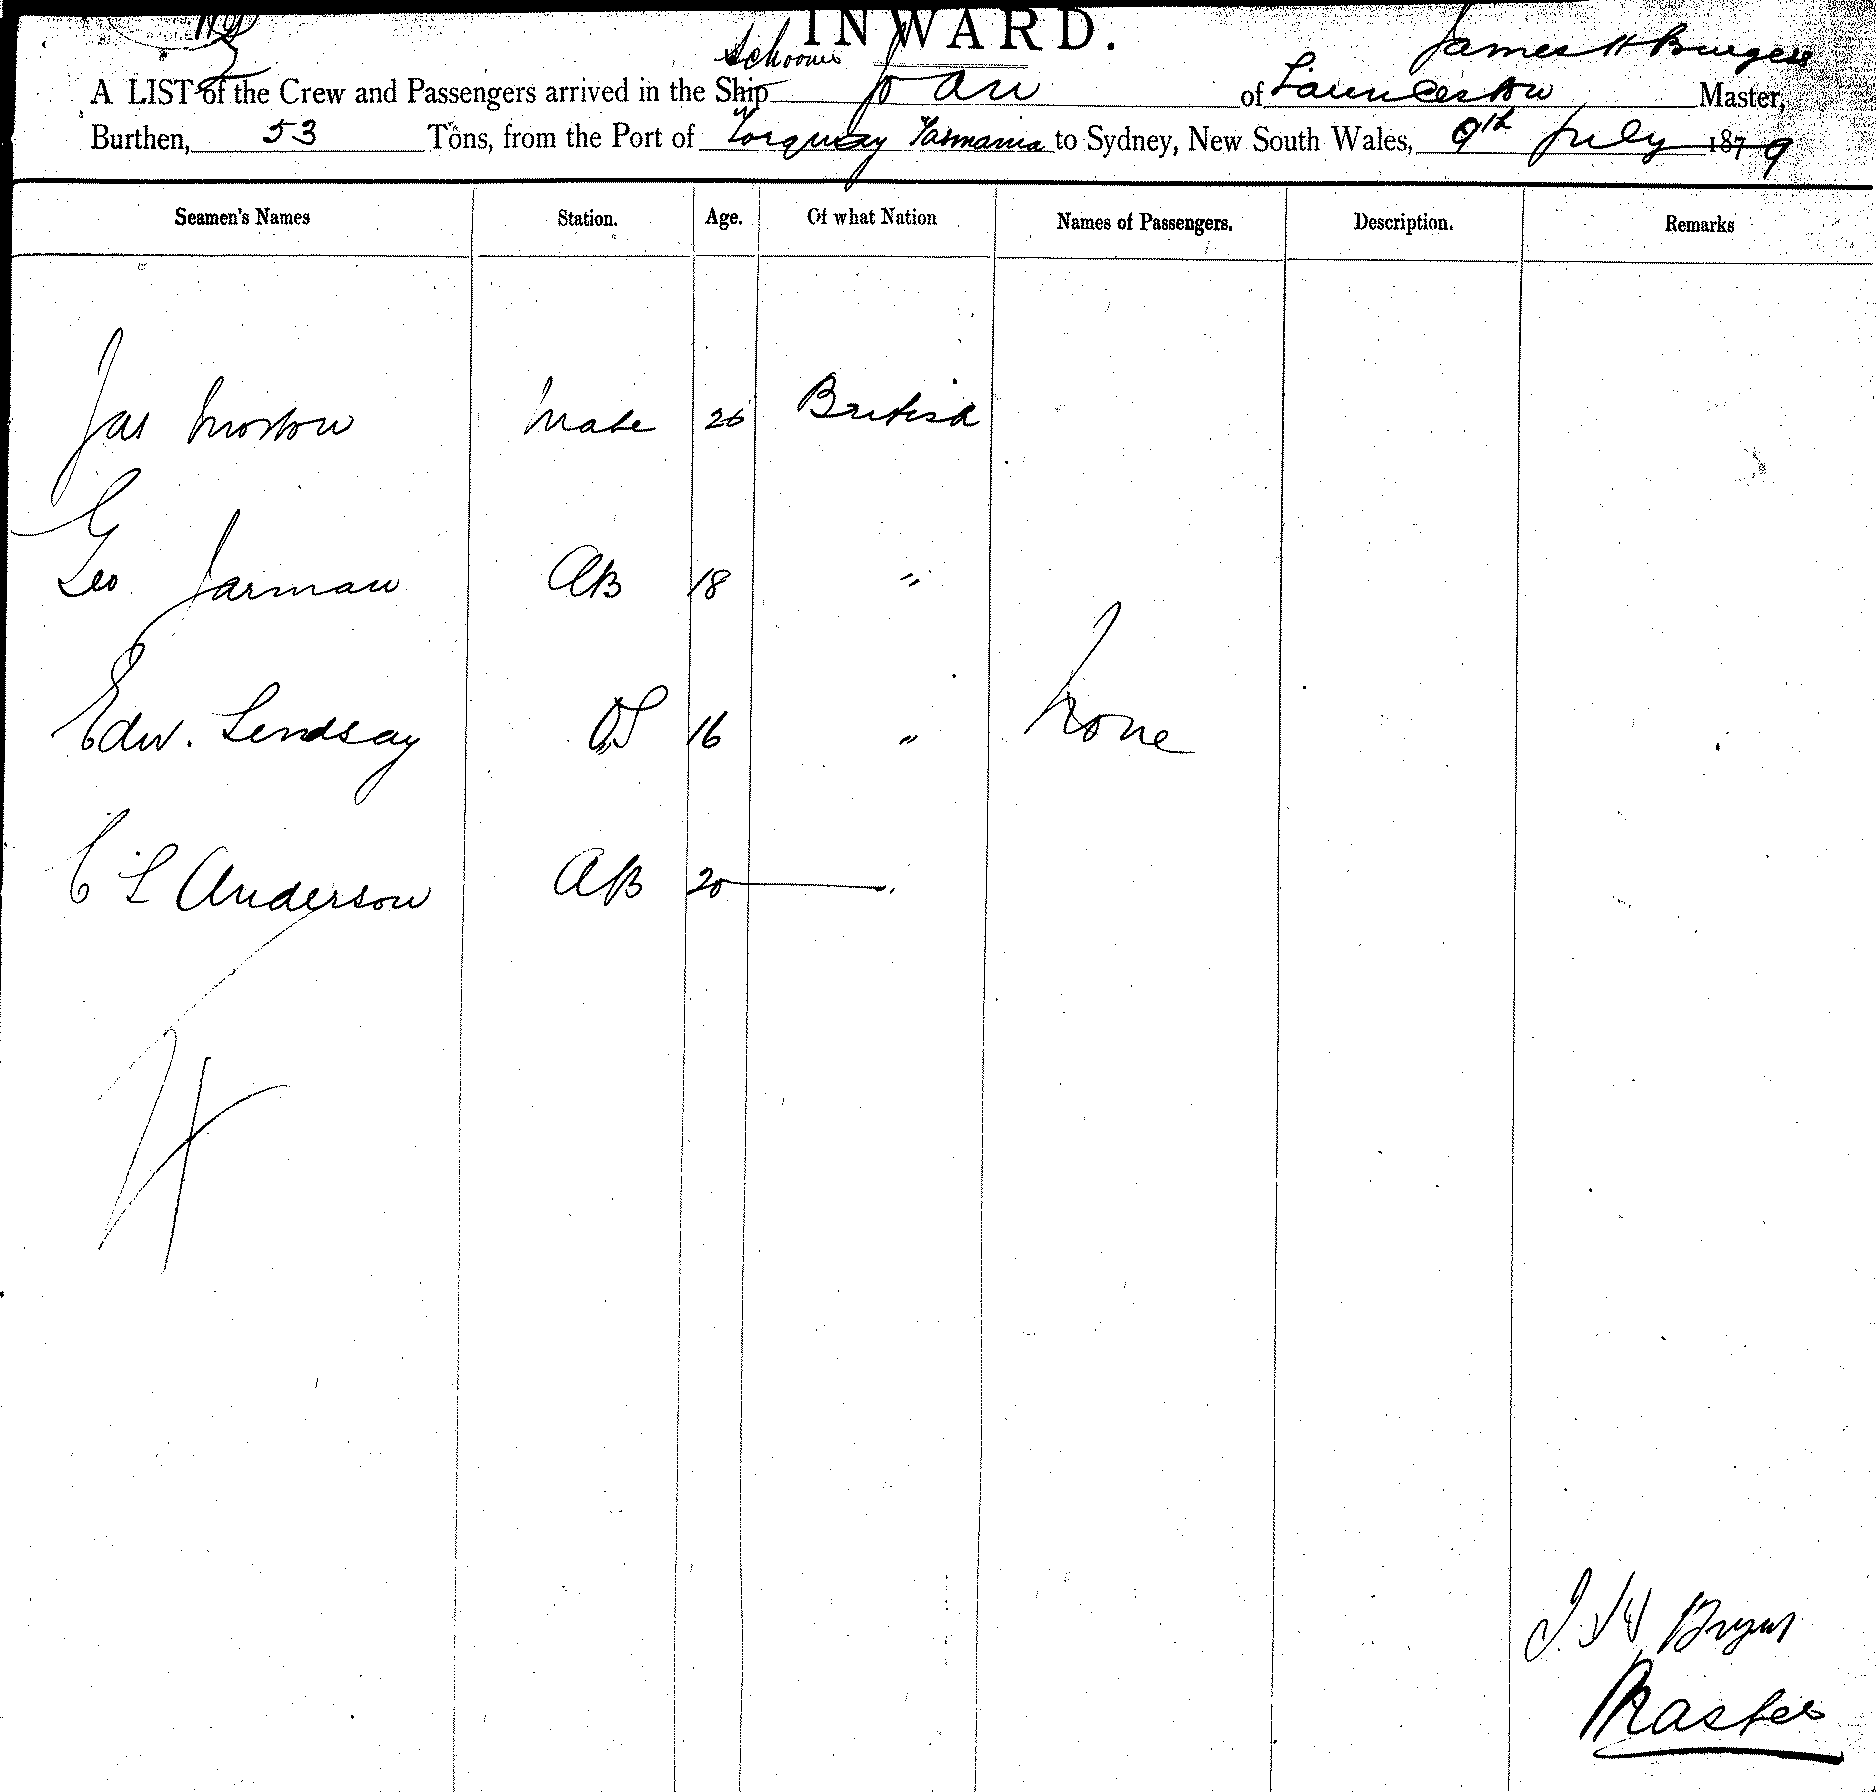 INWARD.
James H Burgess
Schooner
A LIST of the Crew and Passengers arrived in the Ship Jan of Launceston Master,
Burthen, 53 Tons, from the Port of Torquay Tasmania to Sydney, New South Wales, 9th July 1879
Seamen's Names Station. Age. Of what Nation Names of Passengers. Description. Remarks
Jas Morton Mate 26 British
Geo Jarman AB 18 "
Edw. Lindsay OS 16 " None
C L Anderson AB 20
J. H Burgess
Master